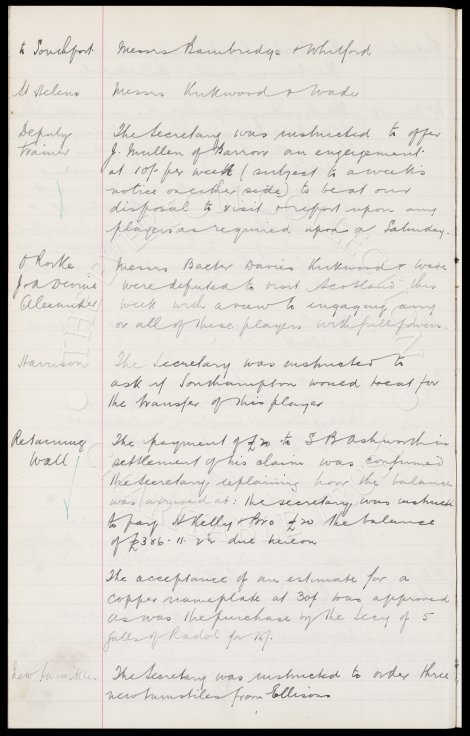 to Southport Messrs Bainbridge & Whitford
St Helens Messrs Kirkwood & Wade
Deputy The Secretary was instructed to offer
trainer J. Mullen of Barrow an engagement
at 10/- per week (subject to a weeks
notice on either side) to be at our
disposal to visit & report upon any
players as required upon a Saturday.
O'Rorke Messrs Baxter Davies Kirkwood & Wade
Devine were deputed to visit Scotland this
Alexander week with a view to engaging any
or all of these players with full powers.
Harrison The Secretary was instructed to
ask if Southampton would treat for
the transfer of this player
Retaining The payment of £20 to S B Ashworth in
Wall settlement of his claim was confirmed
the Secretary explaining how the balance
was arrived at: the secretary was instructed
to pay H Kelly & Bro £20 the balance
of £306. 11. due hereon
The acceptance of an estimate for a
copper nameplate at 30/- was approved
as was the purchase by the Secy of 5
galls of for 15/-.
New turnstiles The Secretary was instructed to order three
new turnstiles from Ellisons